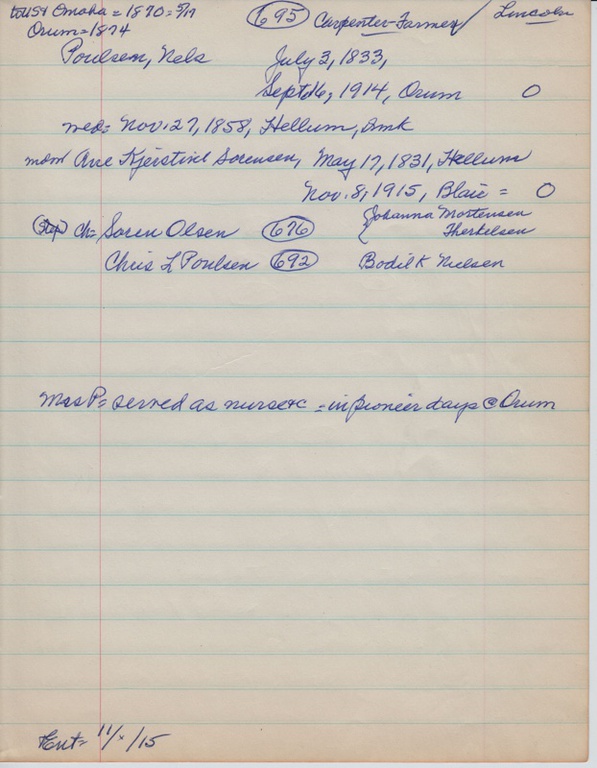 to US & Omaha = 1870 = 5/17 (695) Carpenter-Farmer/ Lincoln
Orum = 1874
Poulsen, Nels July 3, 1833,
Sept 16, 1914, Orum O
wed = Nov. 27, 1858, Hellum, Dmk
Kjerstine Sorensen, May 17, 1831, Hellum
Nov. 8, 1915, Blair = O
(Step) Ch = Soren Olsen (676) { Johanna Mortensen
Therkelsen
Chris L Poulsen (692) Bodil K Nielsen
Mrs P = served as nurse &c = in pioneer days @ Orum
Ent = 11/x/15